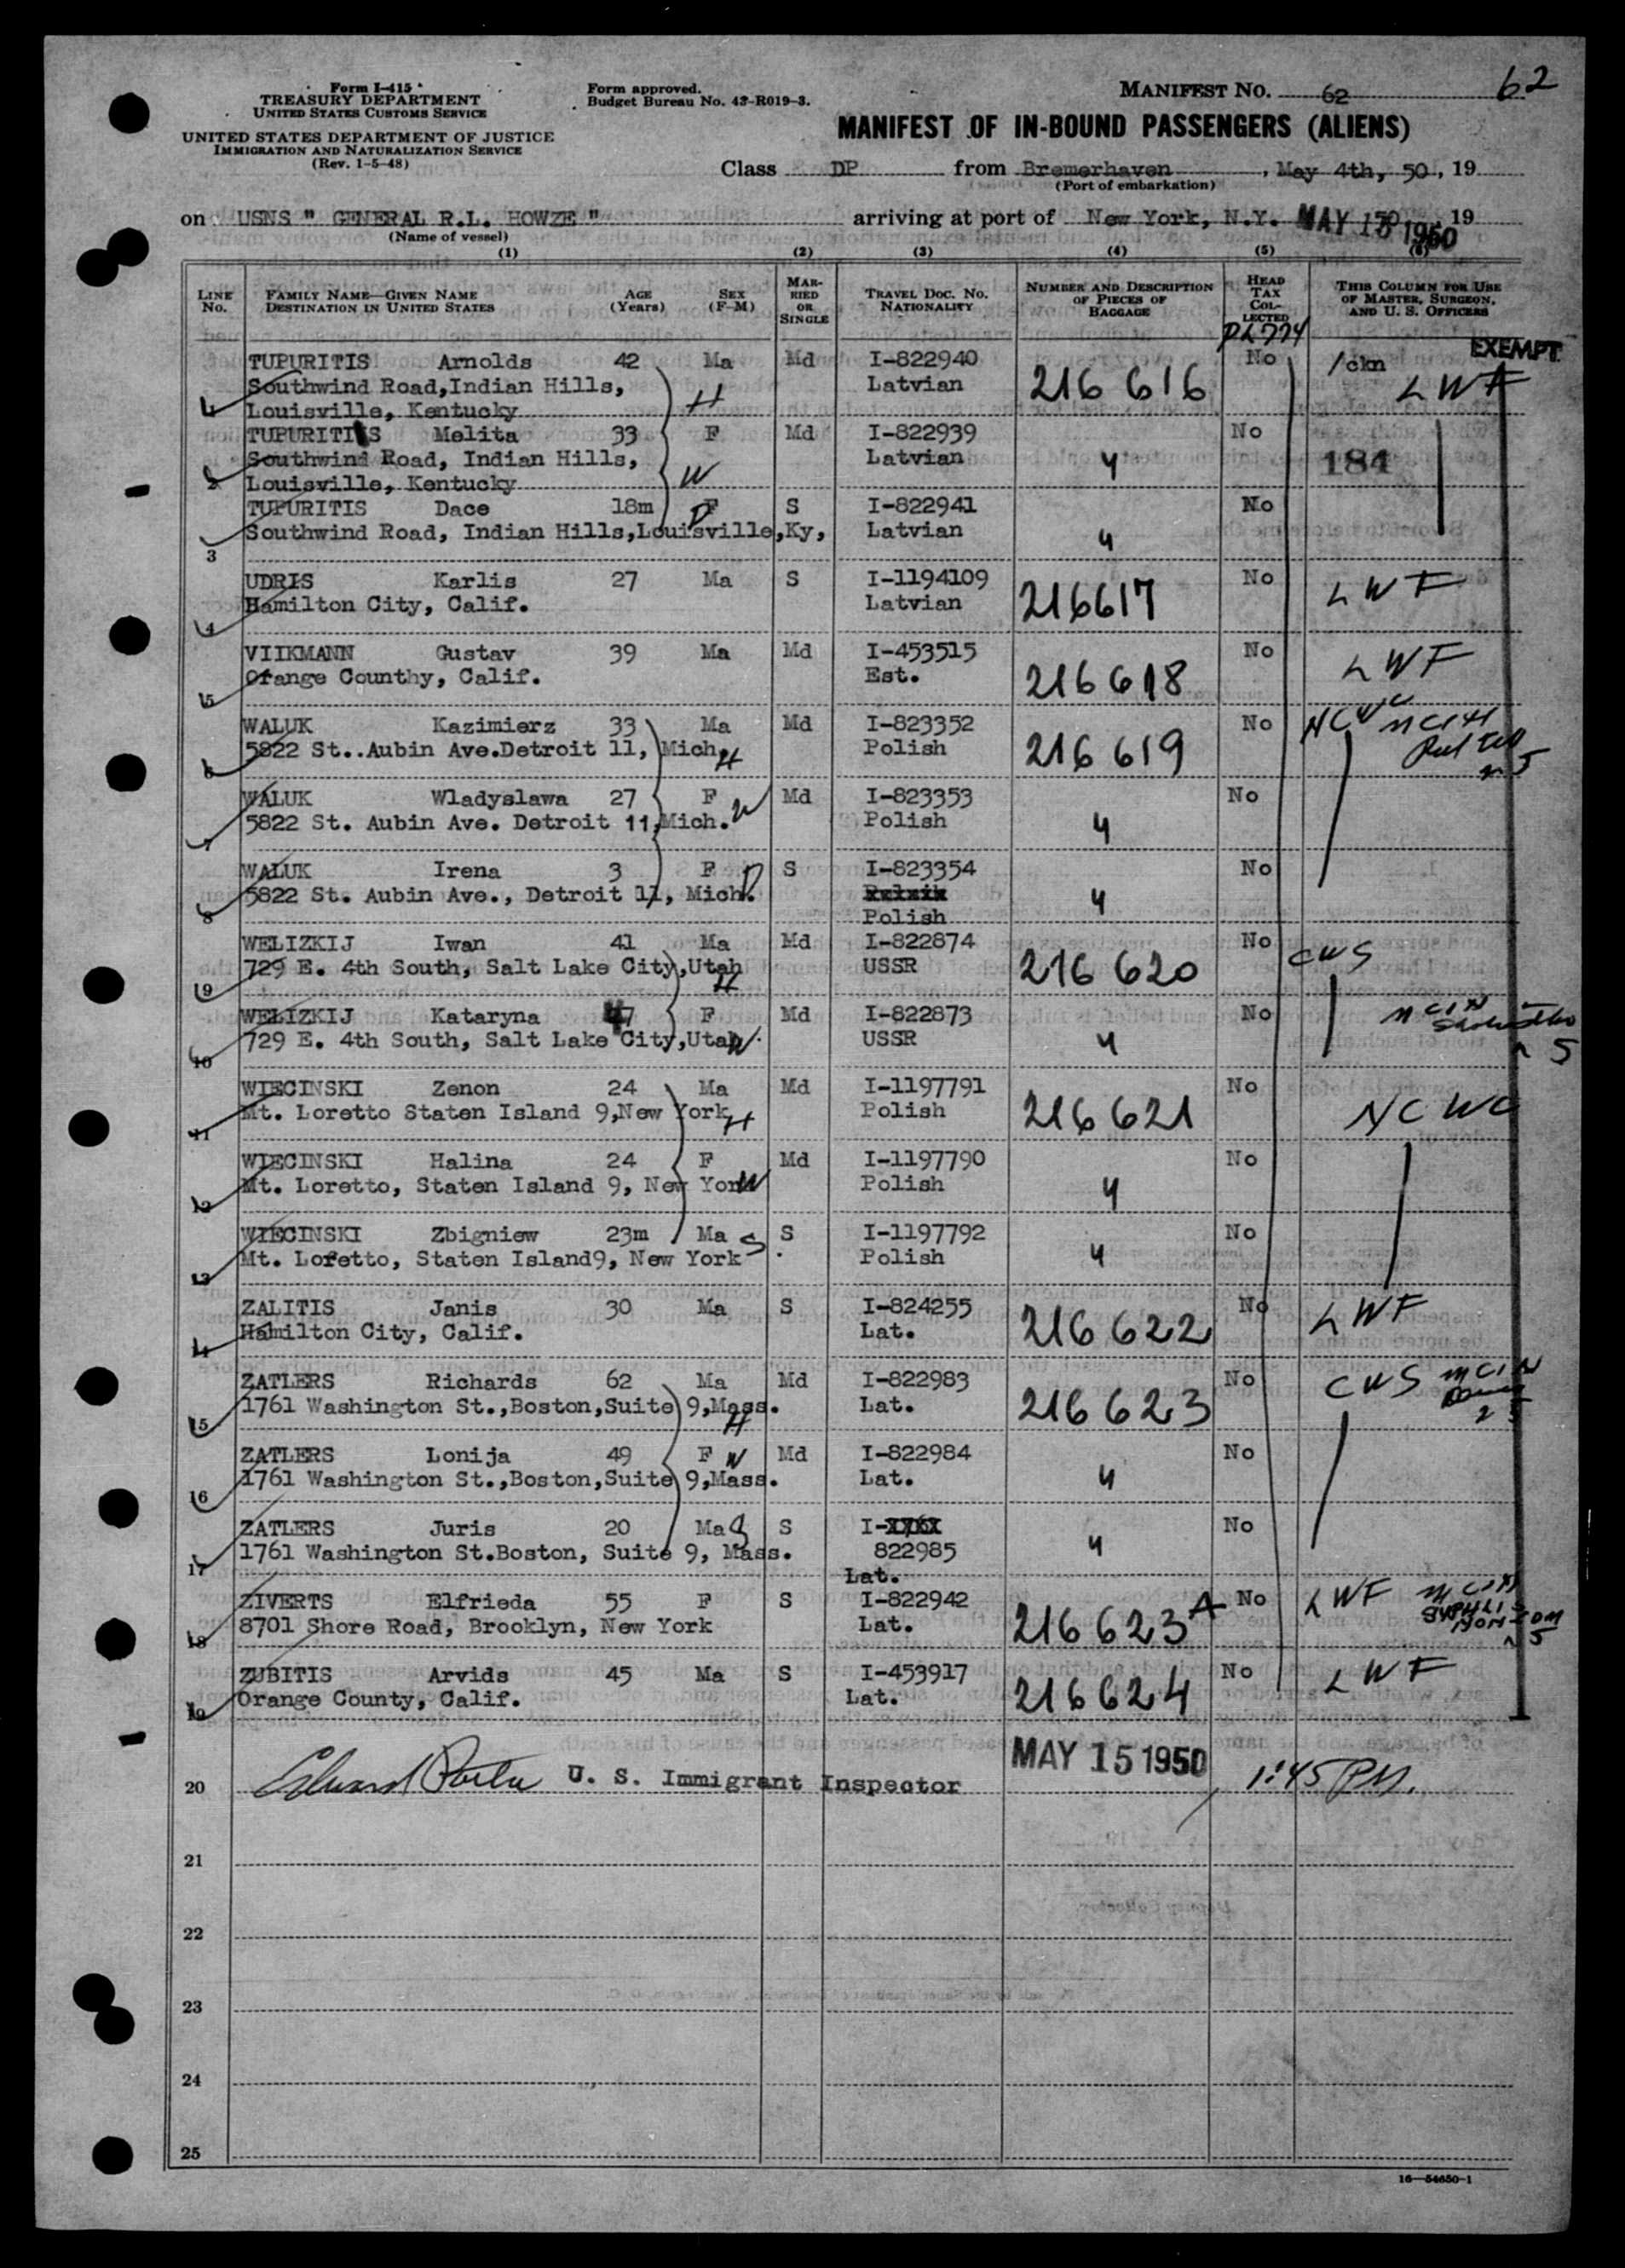 Form I-415
TREASURY DEPARTMENT
UNITED STATES CUSTOMS SERVICE
UNITED STATES DEPARTMENT OF JUSTICE
IMMIGRATION AND NATURALIZATION SERVICE
(Rev. 1-5-48)
Form approved.
Budget Bureau No. 43-R019-3.
MANIFEST NO. 62
62
MANIFEST OF IN-BOUND PASSENGERS (ALIENS)
Class DP from Bremerhaven, May 4th, 50, 19
(Port of embarkation)
on USNS " GENERAL R.L. HOWZE " arriving at port of New York, N.Y. MAY 15 1950, 19
(Name of vessel)
(1) (2) (3) (4) (5) (6)
LINE No. FAMILY NAME—GIVEN NAME DESTINATION IN UNITED STATES AGE (Years) SEX (F-M) MARRIED OR SINGLE TRAVEL DOC. NO. NATIONALITY NUMBER AND DESCRIPTION OF PIECES OF BAGGAGE HEAD TAX COLLECTED THIS COLUMN FOR USE OF MASTER, SURGEON, AND U. S. OFFICERS
PL774
EXEMPT
TUPURITIS Arnolds 42 Ma Md I-822940 No 1/ckn
Southwind Road,Indian Hills, H Latvian 216 616 LWF
1 Louisville, Kentucky
TUPURITIS Melita 33 F Md I-822939 No
Southwind Road, Indian Hills, W Latvian 4 184
2 Louisville, Kentucky
TUPURITIS Dace 18m F D S I-822941 No
Southwind Road, Indian Hills,Louisville,Ky, Latvian 4
3
UDRIS Karlis 27 Ma S I-1194109 No LWF
Hamilton City, Calif. Latvian 216617
4
VIIKMANN Gustav 39 Ma Md I-453515 No LWF
Orange Counthy, Calif. Est. 216618
5
WALUK Kazimierz 33 Ma Md I-823352 No NCWC
5822 St..Aubin Ave.Detroit 11, Mich. H Polish 216 619
6
WALUK Wladyslawa 27 F W Md I-823353 No
5822 St. Aubin Ave. Detroit 11,Mich. Polish 4
7
WALUK Irena 3 F D S I-823354 No
5822 St. Aubin Ave., Detroit 11, Mich. 4
8 Polish
WELIZKIJ Iwan 41 Ma Md I-822874 No CWS
729 E. 4th South, Salt Lake City,Utah H USSR 216 620
9
WELIZKIJ Kataryna 47 F Md I-822873 No
729 E. 4th South, Salt Lake City,Utah W USSR 4 5
10
WIECINSKI Zenon 24 Ma Md I-1197791 No
Mt. Loretto Staten Island 9,New York H Polish 216 621 NCWC
11
WIECINSKI Halina 24 F Md I-1197790 No
Mt. Loretto, Staten Island 9, New York W Polish 4
12
WIECINSKI Zbigniew 23m Ma S S I-1197792 No
Mt. Loretto, Staten Island9, New York Polish 4
13
ZALITIS Janis 30 Ma S I-824255 No LWF
Hamilton City, Calif. Lat. 216 622
14
ZATLERS Richards 62 Ma Md I-822983 No CWS
1761 Washington St.,Boston,Suite 9,Mass. H Lat. 216 623
15
ZATLERS Lonija 49 F W Md I-822984 No
1761 Washington St.,Boston,Suite 9,Mass. Lat. 4
16
ZATLERS Juris 20 Ma S S I- No
1761 Washington St.Boston, Suite 9, Mass. 822985 4
17 Lat.
ZIVERTS Elfrieda 55 F S I-822942 No LWF
8701 Shore Road, Brooklyn, New York Lat. 216 623A
18
ZUBITIS Arvids 45 Ma S I-453917 No LWF
Orange County, Calif. Lat. 216624
19
MAY 15 1950
20 U. S. Immigrant Inspector 1:45 PM.
21
22
23
24
25
16—54650-1